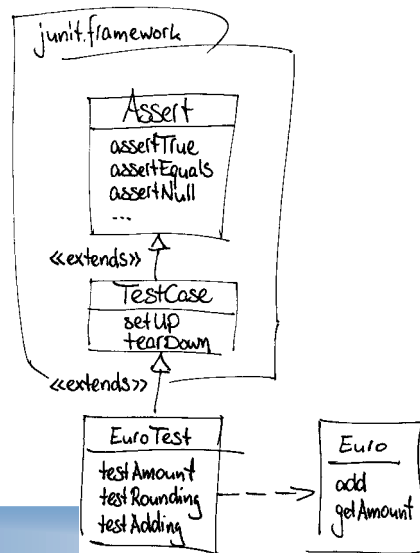 junit.framework
Assert
assertTrue
assertEquals
assertNull
...
«extends»
TestCase
setUp
tearDown
«extends»
EuroTest
testAmount
testRounding
testAdding
Euro
add
getAmount